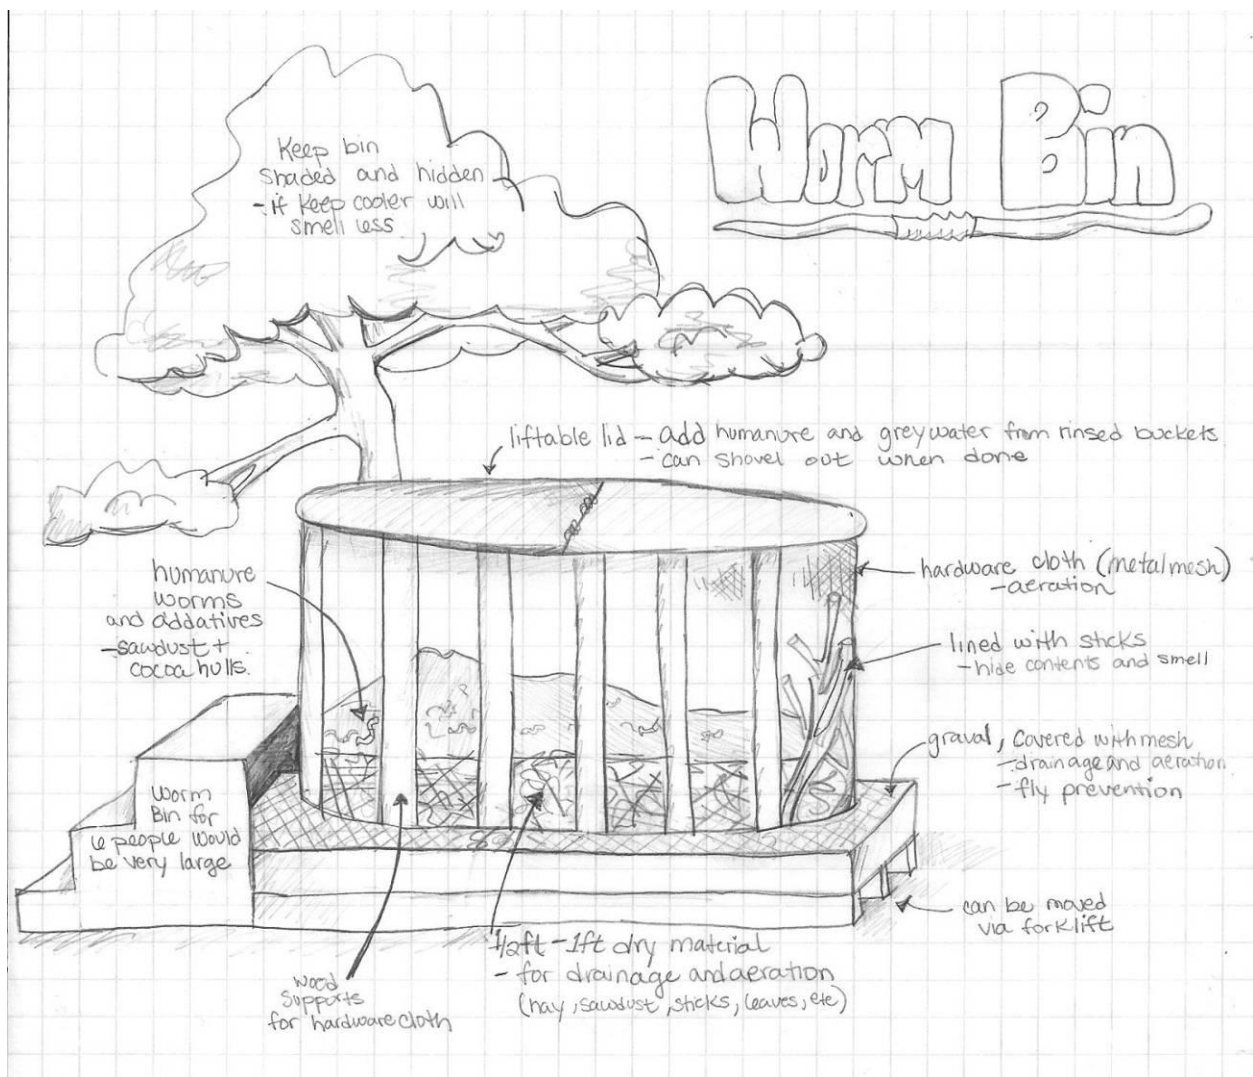 Worm Bin
Keep bin
shaded and hidden
- if keep cooler will
smell less
liftable lid - add humanure and greywater from rinsed buckets
- can shovel out when done
humanure
worms
and addatives
- sawdust +
cocoa hulls.
hardware cloth (metal mesh)
- aeration
lined with sticks
- hide contents and smell
graval, covered with mesh
- drainage and aeration
- fly prevention
Worm
Bin for
6 people would
be very large
can be moved
via forklift
1/2ft - 1ft dry material
- for drainage and aeration
(hay, sawdust, sticks, leaves, etc)
wood
supports
for hardware cloth